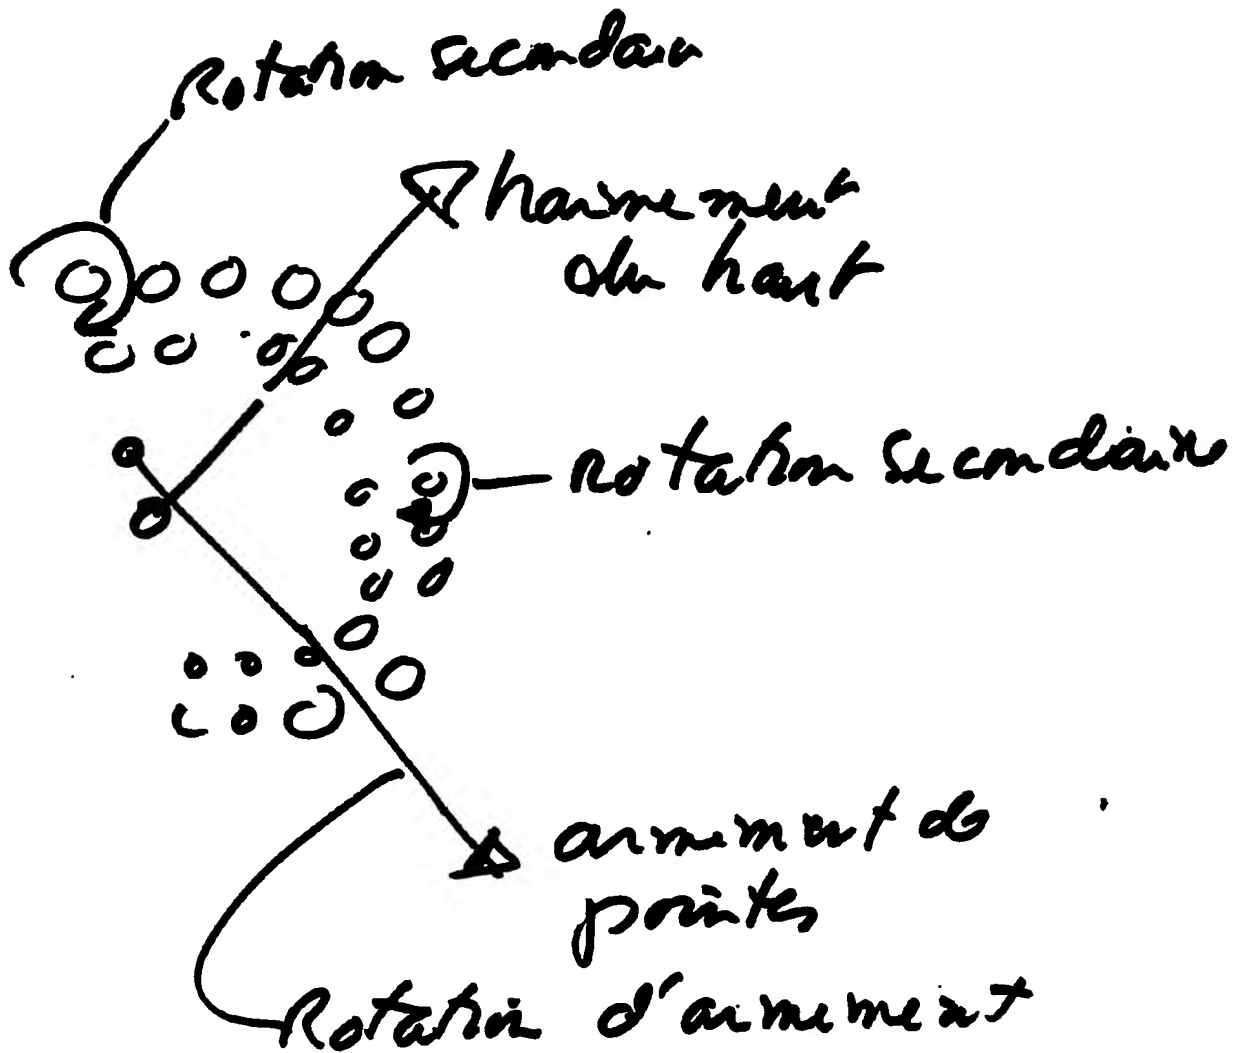 Rotation secondair
harmement
du haut
Rotation secondaire
armement de
pointes
Rotation d'armement